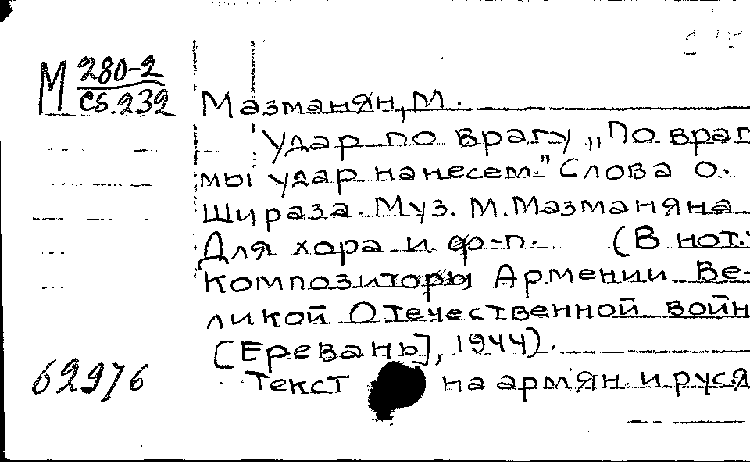 М 280-2
сб.232
Мазманян, М.
Удар по врагу „По враг
мы удар нанесем." Слова О.
Шираза. Муз. М. Мазманяна
Для хора и ф-п. (В нот.:
Композиторы Армении Ве-
ликой Отечественной войн
[Ереван], 1944).
Текст на армян. и руся
62976